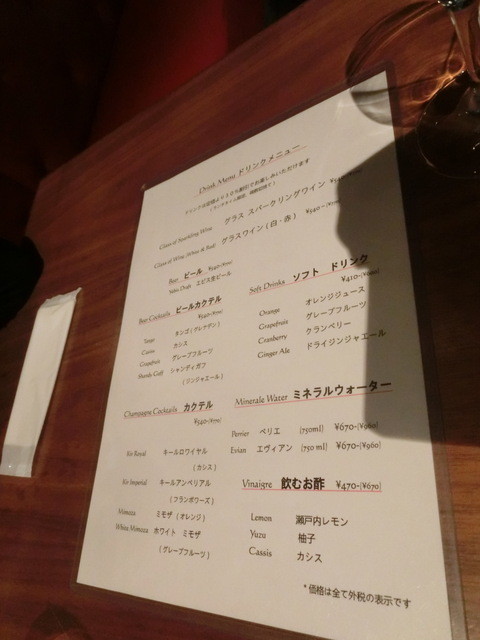 Drink Menu ドリンクメニュー
Glass of Sparkling Wine グラス スパークリングワイン
Glass of Wine (White & Red) グラスワイン (白・赤) ¥540-
Beer ビール ¥540-
ヱビス生ビール
Beer Cocktails ビールカクテル
¥540-
Tango タンゴ (グレナデン)
Cassis カシス
Grapefruit グレープフルーツ
Shandy Gaff シャンディガフ
(ジンジャエール)
Soft Drinks ソフト ドリンク
¥410-
Orange オレンジジュース
Grapefruit グレープフルーツ
Cranberry クランベリー
Ginger Ale ドライジンジャエール
Champagne Cocktails カクテル
¥540-
Kir Royal キールロワイヤル
(カシス)
Kir Imperial キールアンペリアル
(フランボワーズ)
Mimoza ミモザ (オレンジ)
White Mimoza ホワイト ミモザ
(グレープフルーツ)
Minerale Water ミネラルウォーター
Perrier ペリエ (750ml) ¥670-(¥960)
Evian エヴィアン (750 ml) ¥670-(¥960)
Vinaigre 飲むお酢 ¥470-(¥670)
Lemon 瀬戸内レモン
Yuzu 柚子
Cassis カシス
*価格は全て外税の表示です